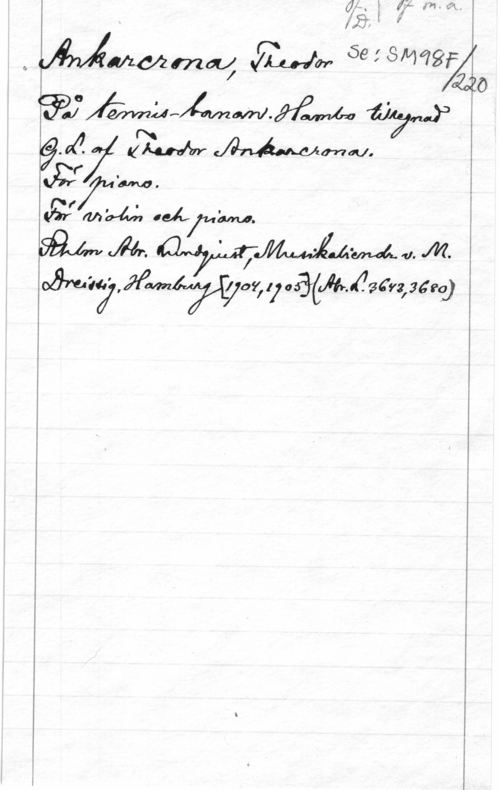 Ankarcrona, Theodor Se: SM98F/220
På tennis-banan. Hambo tillegnad
G.L. af Theodor Ankarcrona.
För piano.
För violin och piano.
Sthlm Abr. Lundquist, Musikaliendr. v. M.
Dreissig, Hamburg [1904, 1905] (Abr.L. 3643, 3680)